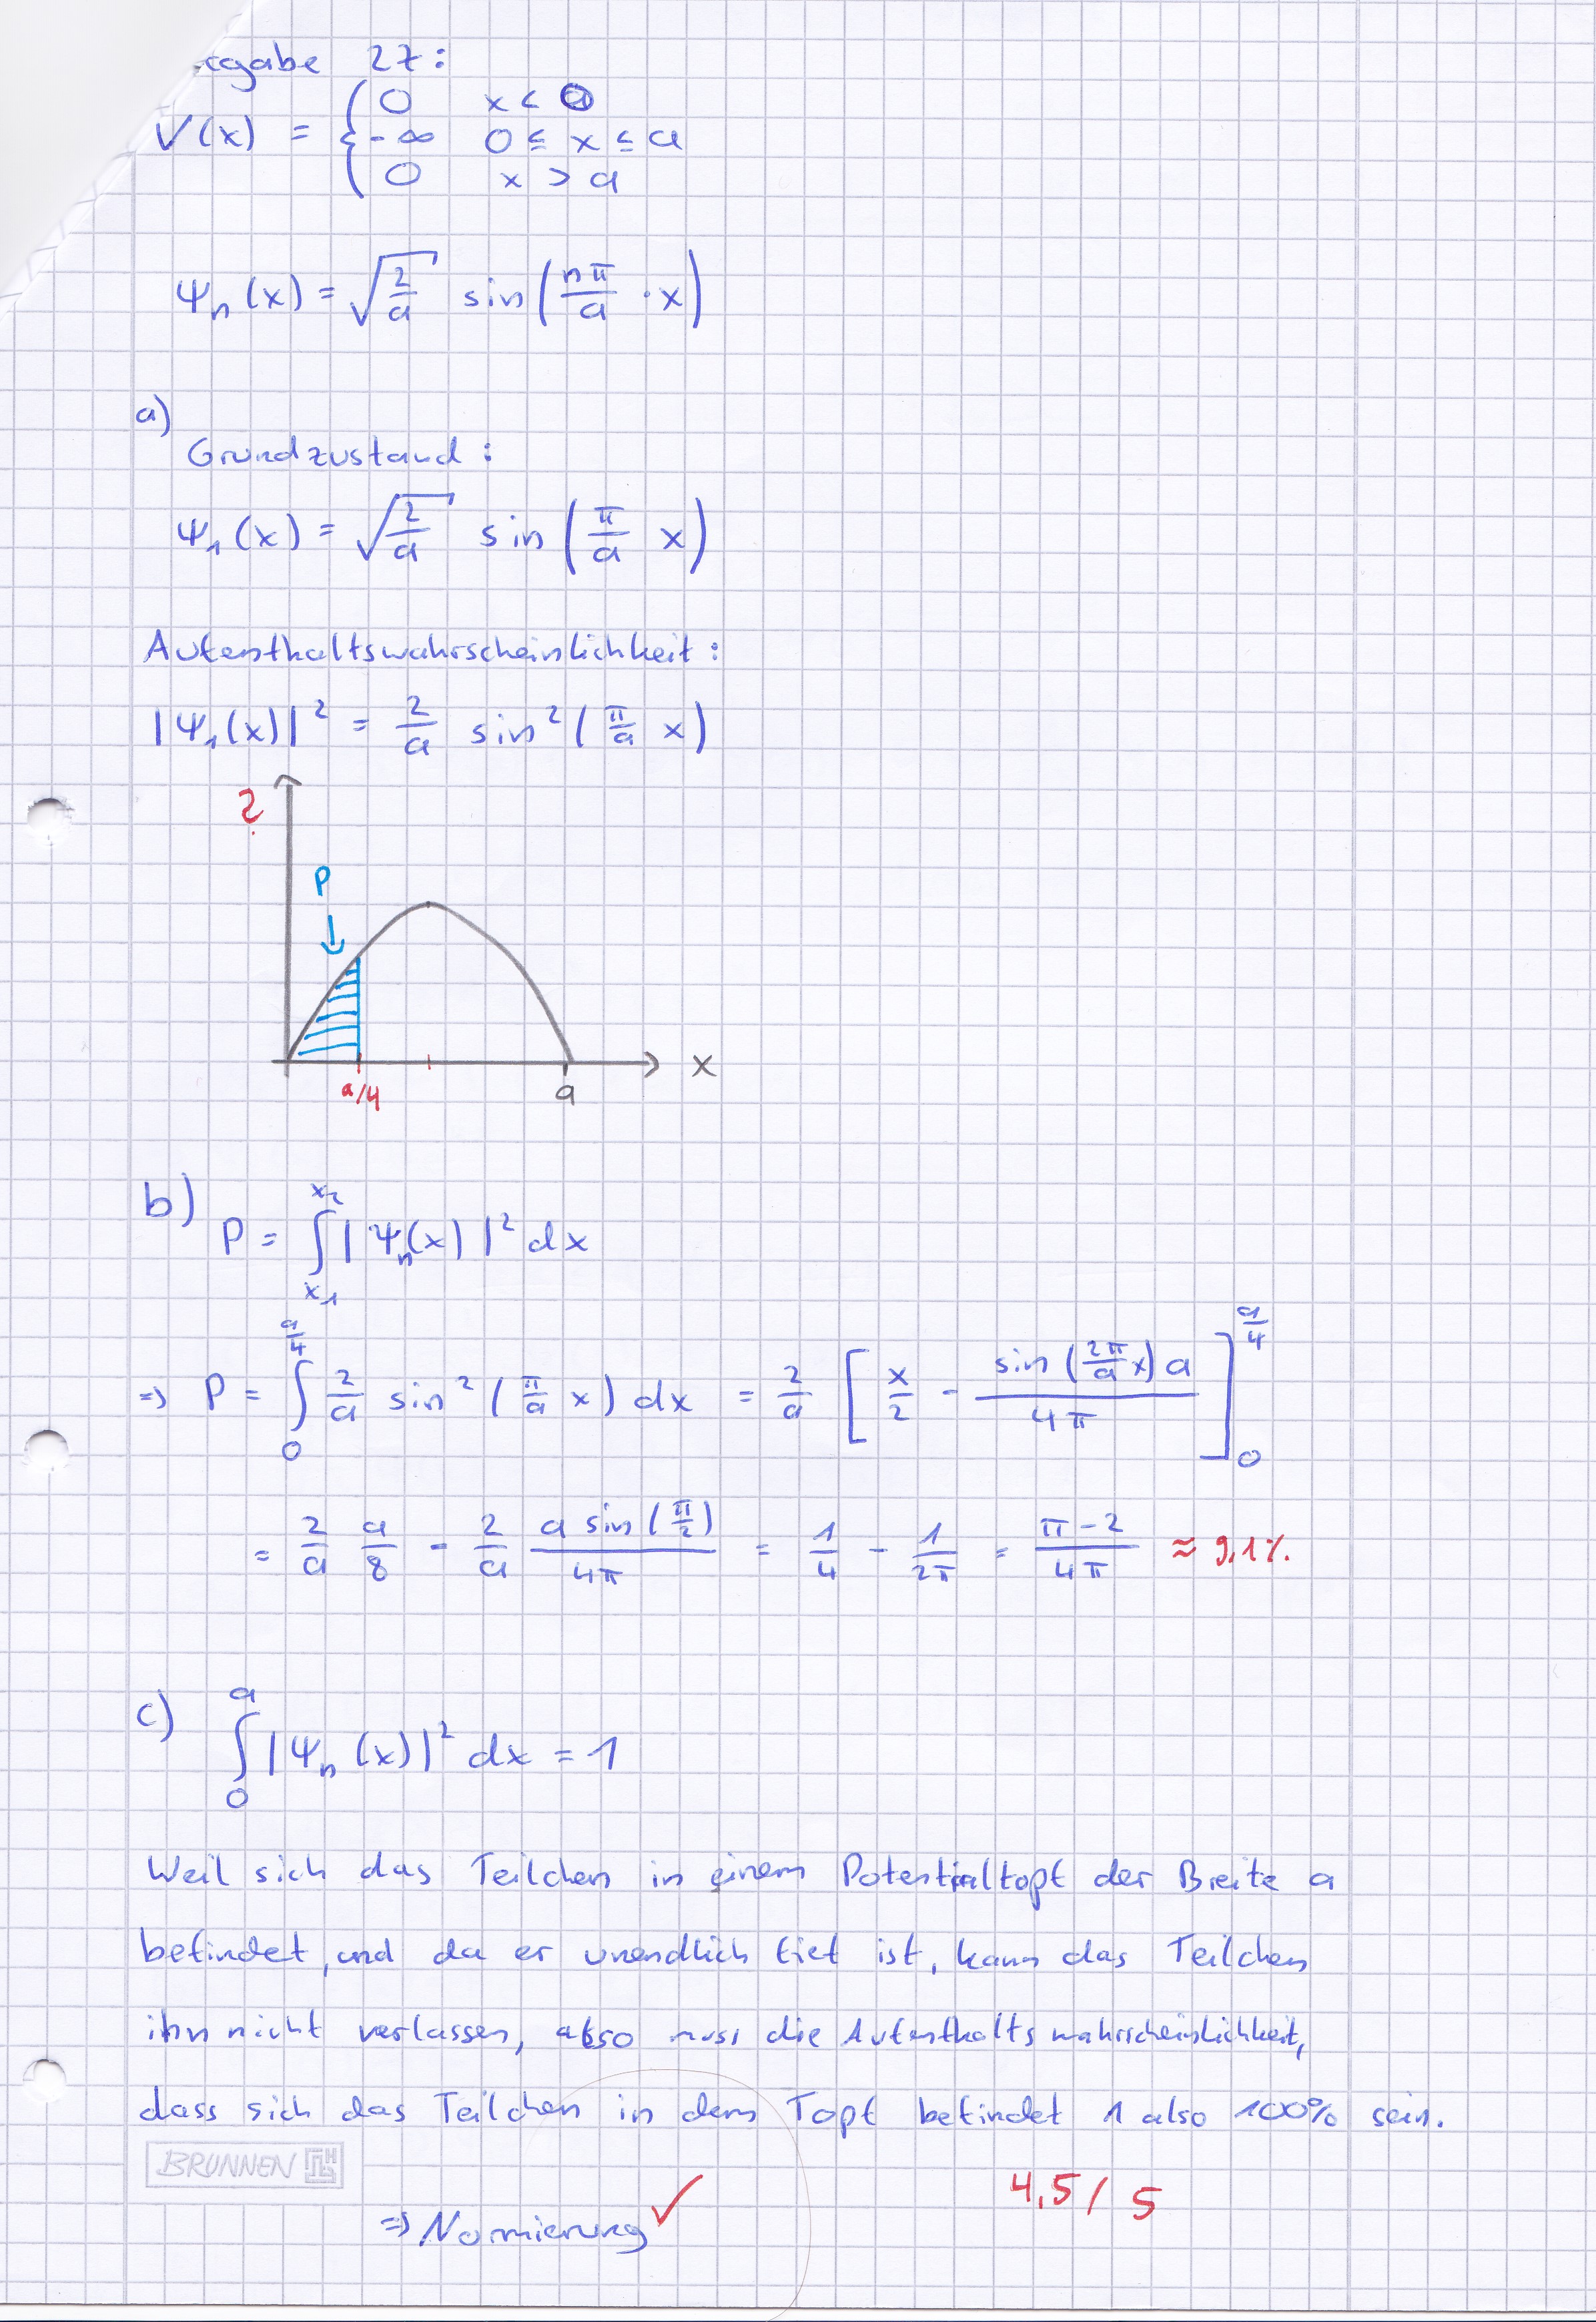 fgabe 27:
V(x) = { 0 x < 0
-∞ 0 ≤ x ≤ a
0 x > a
Ψn (x) = √(2/a) sin(nπ/a · x)
a)
Grundzustand:
Ψ1 (x) = √(2/a) sin(π/a x)
Aufenthaltswahrscheinlichkeit:
|Ψ1(x)|² = 2/a sin²(π/a x)
?
P
x
a/4
a
b) P = ∫_{x1}^{x2} | Ψn(x) |² dx
=> P = ∫_0^{a/4} 2/a sin²(π/a x) dx = 2/a [ x/2 - sin(2π/a x) a / 4π ]_0^{a/4}
= 2/a a/8 - 2/a a sin(π/2) / 4π = 1/4 - 1/2π = π-2 / 4π ≈ 9,1%.
c) ∫_0^a |Ψn (x)|² dx = 1
Weil sich das Teilchen in einem Potentialtopf der Breite a
befindet, und da er unendlich tief ist, kann das Teilchen
ihn nicht verlassen, also muss die Aufenthaltswahrscheinlichkeit,
dass sich das Teilchen in dem Topf befindet 1 also 100% sein.
BRUNNEN
=> Normierung ✓
4,5/5